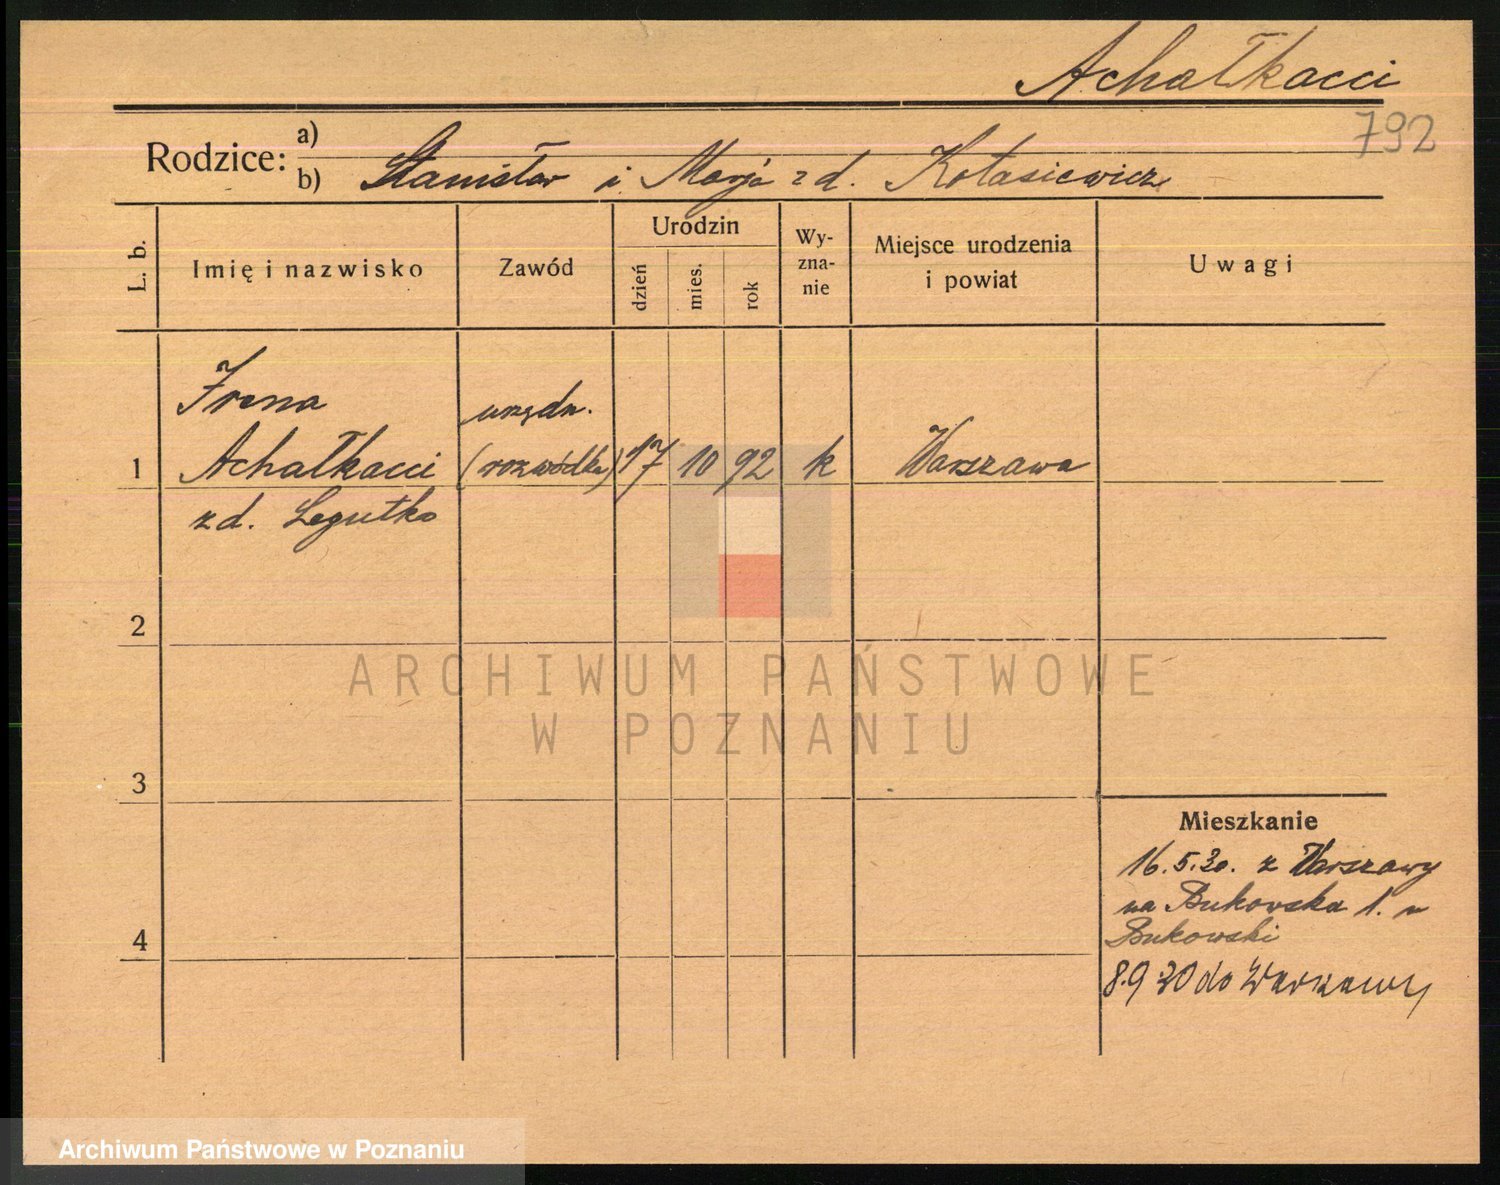 Achałkacci
792
Rodzice: a)
b) Stanisław i Marja z d. Kołasiewicz
L. b.
Imię i nazwisko
Zawód
Urodzin
dzień
mies.
rok
Wy-
zna-
nie
Miejsce urodzenia
i powiat
Uwagi
Irena
urzędn.
1 Achałkacci (rozwódka) 17 10 92 k Warszawa
z d. Legutko
2
3
4
Mieszkanie
16.5.30. z Warszawy
na Bukowska 1. u
Bukowski
8.9 30 do Warszawy
ARCHIWUM PAŃSTWOWE
W POZNANIU
Archiwum Państwowe w Poznaniu